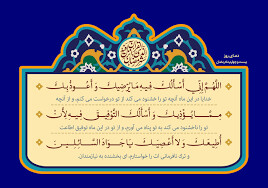 دعای روز
بیست و چهارم ماه رمضان
اللهم إني أسألك فيه ما يرضيك و أعوذ بك
خدایا در این ماه آنچه تو را خشنود می کند از تو درخواست می کنم، و از آنچه
مما يؤذيك و أسألك التوفيق فيه لأن
تو را ناخشنود می کند به تو پناه می آورم. و از تو در این ماه توفیق اطاعت
أطيعك ولا أعصيك يا جواد السائلين
و ترک نافرمانی تو را خواستارم، ای بخشنده به نیازمندان.